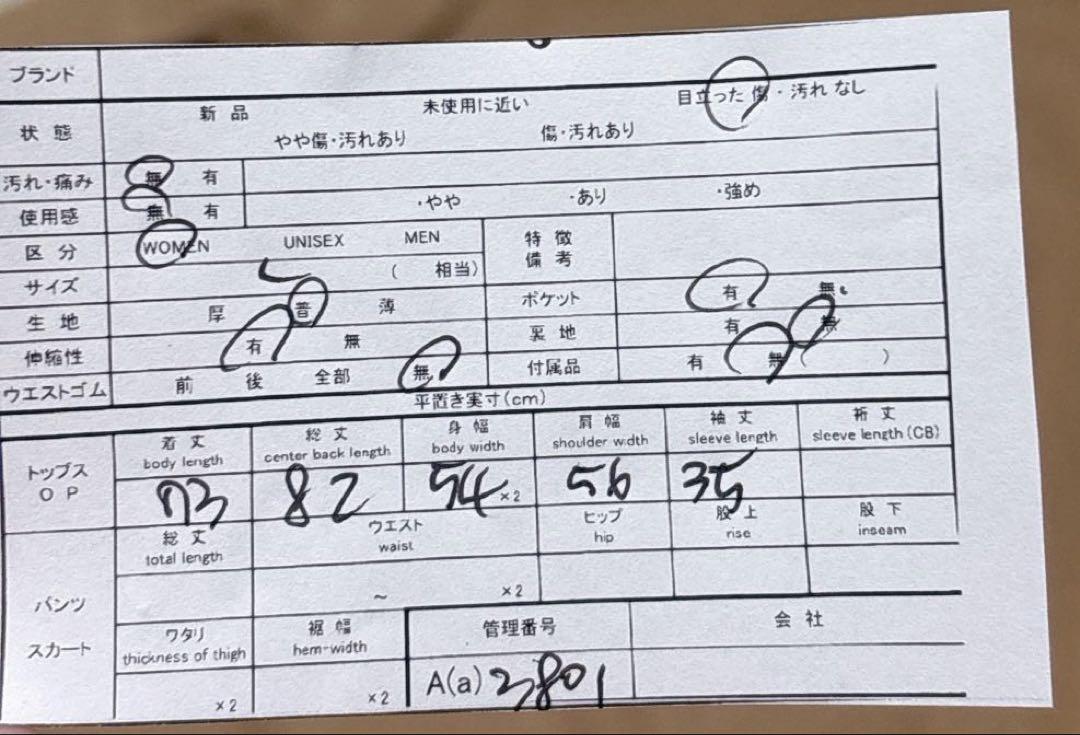 ブランド
状態 新品 未使用に近い 目立った傷・汚れなし
やや傷・汚れあり 傷・汚れあり
汚れ・痛み 無 有
使用感 無 有 ・やや ・あり ・強め
区分 WOMEN UNISEX MEN 特徴
備考
サイズ L ( 相当)
生地 厚 普 薄 ポケット 有 無
伸縮性 有 無 裏地 有 無
ウエストゴム 前 後 全部 無 付属品 有 無 ( )
平置き実寸(cm)
トップス
OP
着丈 総丈 身幅 肩幅 袖丈 裄丈
body length center back length body width shoulder width sleeve length sleeve length (CB)
73 82 54 ×2 56 35
総丈 ウエスト ヒップ 股上 股下
total length waist hip rise inseam
パンツ
スカート
~ ×2
ワタリ 裾幅 管理番号 会社
thickness of thigh hem-width
×2 ×2 A(a) 3801